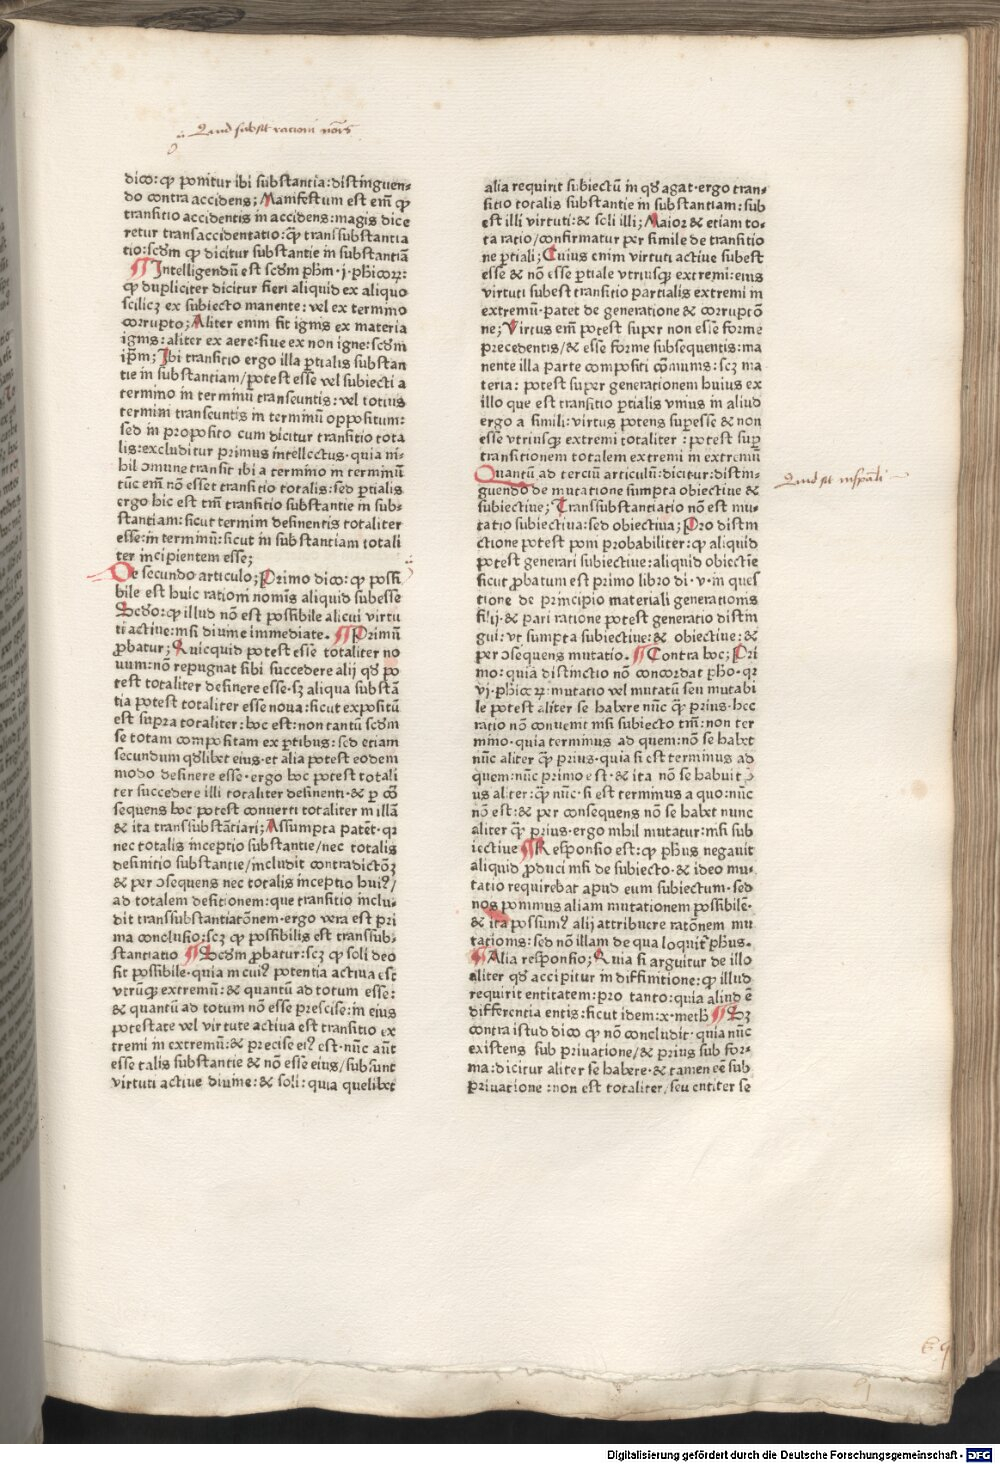 Quid subsit rationi nois
dico: qp ponitur ibi substantia: distinguen-
do contra accidens; Manifestum est em̄ qp
transitio accidentis in accidens: magis dice
retur transaccidentatio: q̄ȝ transsubstantia
tio: scd̄m qp dicitur substantie in substantiā
¶ Intelligendū est scd̄m ph̄m ·j· ph̄icoꝝ:
qp dupliciter dicitur fieri aliquid ex aliquo
scilicꝫ ex subiecto manente: vel ex termino
corrupto; Aliter enim fit ignis ex materia
ignis: aliter ex aere: siue ex non igne: scd̄m
ip̄m; Ibi transitio ergo illa p̱tialis substan
tie in substantiam/potest esse vel subiecti a
termino in terminū transeuntis: vel totius
termini transeuntis in terminū oppositum:
sed in proposito cum dicitur transitio tota
lis: excluditur primus intellectus· quia ni-
hil omune transit ibi a termino in terminū
tūc em̄ nō esset transitio totalis: sed p̱tialis
ergo hic est tm̄ transitio substantie in sub-
stantiam: sicut termini definentis totaliter
esse: in terminū: sicut in substantiam totali
ter incipientem esse;
De secundo articulo; Primo dico: qp possi
bile est huic rationi nominis aliquid subesse
Scd̄o: qp illud nō est possibile alicui virtu
ti actiue: nisi diuine immediate. ¶ Primū
ꝓbatur; Quicquid potest esse totaliter no
uum: nō repugnat sibi succedere alij qd̄ po
test totaliter definere esse· sꝫ aliqua substā
tia potest totaliter esse noua: sicut expositū
est supra totaliter: hoc est: non tantū scd̄m
se totam compositam ex p̱tibus: sed etiam
secundum qd̄libet eius· et alia potest eodem
modo definere esse· ergo hoc potest totali
ter succedere illi totaliter definenti· & p̱ cō
sequens hoc potest conuerti totaliter in illā
& ita transsubstātiari; Assumpta patēt· qꝛ
nec totalis inceptio substantie/nec totalis
definitio substantie/includit contradictōꝫ
& per ɔsequens nec totalis inceptio huiꝰ/
ad totalem desitionem: que transitio inclu-
dit transsubstantiatōnem· ergo vera est pri
ma conclusio: scꝫ qp possibilis est transsub-
stantiatio ¶ Scd̄m ꝓbatur: scꝫ qp soli deo
sit possibile· quia in cuiꝰ potentia actiua est
vtrūqꝫ extremū: & quantū ad totum esse:
& quantū ad totum nō esse prescise: in eius
potestate vel virtute actiua est transitio ex
tremi in extremū: & precise eiꝰ est· nūc aūt
esse talis substantie & nō esse eius/subsunt
virtuti actiue diuine: & soli: quia quelibet
alia requirit subiectū in qd̄ agat· ergo tran-
sitio totalis substantie in substantiam: sub
est illi virtuti: & soli illi; Maior & etiam to-
ta ratio/confirmatur per simile de transitio
ne p̱tiali; Cuius enim virtuti actiue subest
esse & nō esse p̱tiale vtriusqꝫ extremi: eius
virtuti subest transitio partialis extremi in
extremū· patet de generatione & corruptō
ne; Virtus em̄ potest super non esse forme
precedentis/& esse forme subsequentis: ma
nente illa parte compositi cōmunis: scꝫ ma
teria: potest super generationem huius ex
illo que est transitio p̱tialis vnius in aliud
ergo a simili: virtus potens sup̱esse & non
esse vtriusqꝫ extremi totaliter: potest sup̱
transitionem totalem extremi in extremū
Quantū ad terciū articulū: dicitur: distin-
guendo de mutatione sumpta obiectiue &
subiectiue; Transsubstantiatio nō est mu-
tatio subiectiua: sed obiectiua; Pro distin
ctione potest poni probabiliter: qp aliquid
potest generari subiectiue: aliquid obiectiē
sicut ꝓbatum est primo libro di· v· in ques
tione de principio materiali generationis
filij· & pari ratione potest generatio distin
gui: vt sumpta subiectiue: & obiectiue: &
per ɔsequens mutatio. ¶ Contra hoc; Pri
mo: quia distinctio nō concordat ph̄o· qꝛ
vj· ph̄icoꝝ: mutatio vel mutatū seu mutabi
le potest aliter se habere nūc q̄ȝ prius· hec
ratio nō conuenit nisi subiecto tm̄: non ter
mino· quia terminus ad quem: nō se habet
nūc aliter q̄ȝ prius· quia si est terminus ad
quem: nūc primo est· & ita nō se habuit
us aliter: q̄ȝ nūc· si est terminus a quo: nūc
nō est: & per consequens nō se habet nunc
aliter q̄ȝ prius· ergo nihil mutatur: nisi sub
iectiue ¶ Responsio est: qp ph̄us negauit
aliquid ꝓduci nisi de subiecto· & ideo mu-
tatio requirebat apud eum subiectum· sed
nos ponimus aliam mutationem possibilē·
& ita possumꝰ alij attribuere ratōnem mu
tationis: sed nō illam de qua loquit̄ ph̄us.
¶ Alia responsio; Quia si arguitur de illo
aliter qd̄ accipitur in diffinitione: qp illud
requirit entitatem: pro tanto: quia aliud ē
differentia entis: sicut idem: x· meth̄ ¶ Sꝫ
contra istud dico qp nō concludit· quia nūc
existens sub priuatione/& prius sub for-
ma: dicitur aliter se habere· & tamen eē sub
priuatione: non est totaliter/seu entiter se
Digitalisierung gefördert durch die Deutsche Forschungsgemeinschaft - DFG